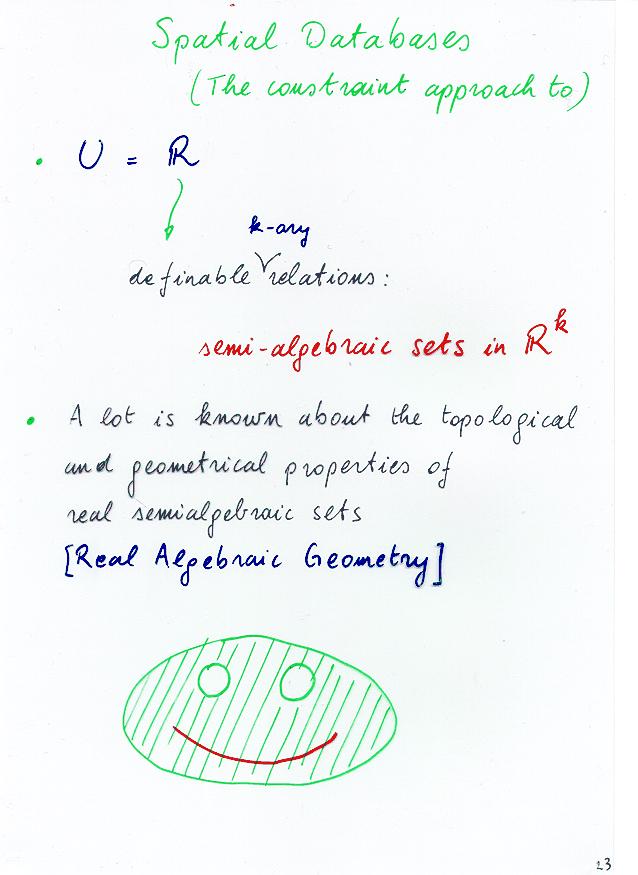 Spatial Databases
(The constraint approach to)
• U = ℝ
k-ary
definable relations:
semi-algebraic sets in ℝ^k
• A lot is known about the topological
and geometrical properties of
real semialgebraic sets
[Real Algebraic Geometry]
23